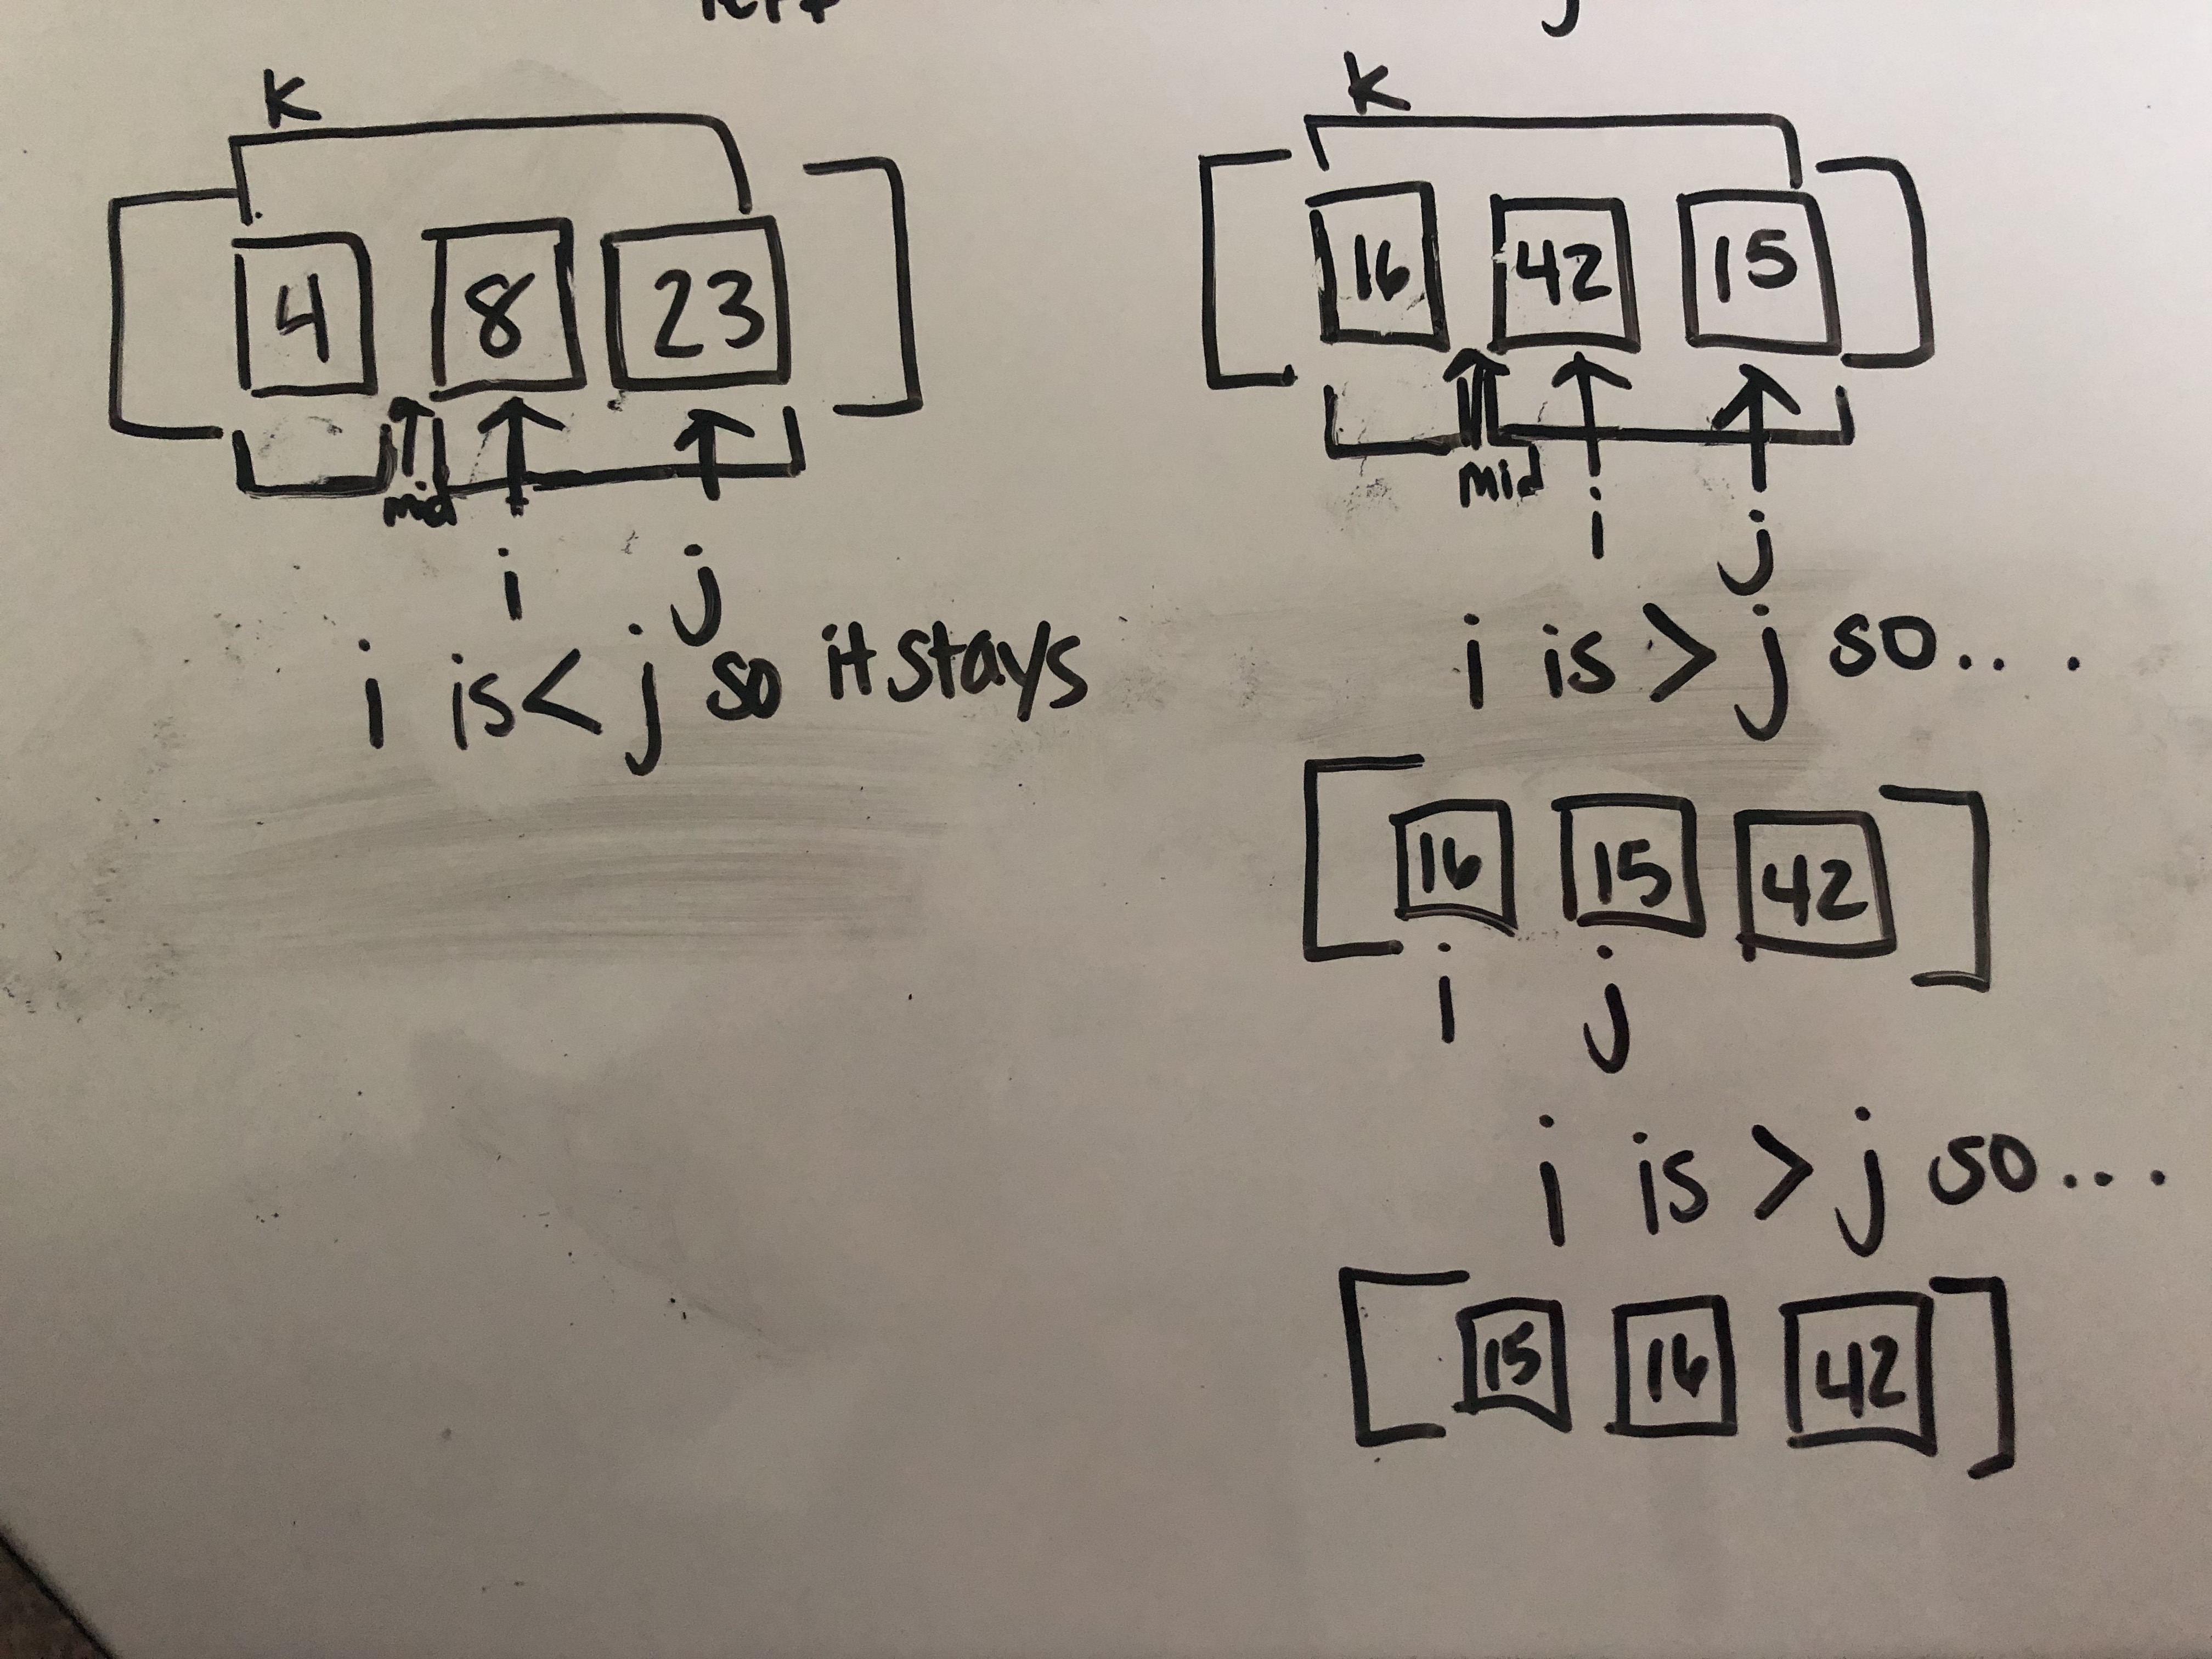 k
[ 4 8 23 ]
mid
i j
i is < j so it stays
j
k
[ 16 42 15 ]
mid
i j
i is > j so...
[ 16 15 42 ]
i j
i is > j so...
[ 15 16 42 ]